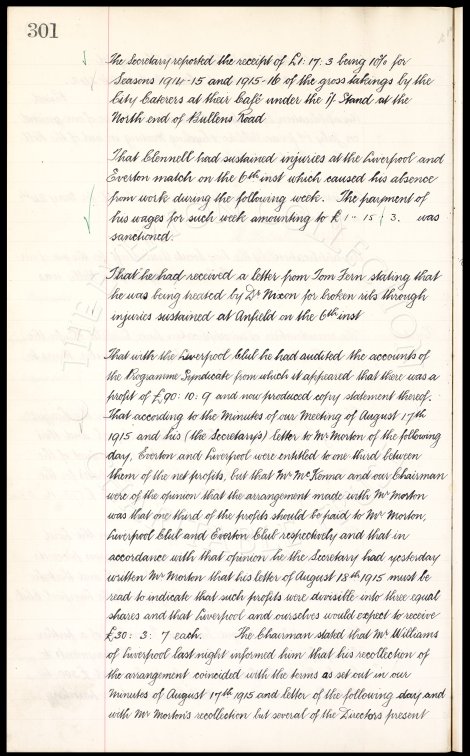 301
The Secretary reported the receipt of £1. 17. 3 being 10% for
Seasons 1914-15 and 1915-16 of the gross takings by the
City Caterers at their Café under the Stand at the
North end of Bullens Road
That Clennell had sustained injuries at the Liverpool and
Everton match on the 6th inst which caused his absence
from work during the following week. The payment of
his wages for such week amounting to £1 - 15 - 3. was
sanctioned.
That he had received a letter from Tom Fern stating that
he was being treated by Dr Nixon for broken ribs through
injuries sustained at Anfield on the 6th inst
That with the Liverpool Club he had audited the accounts of
the Programme Syndicate from which it appeared that there was a
profit of £90: 10: 9 and now produced copy statement thereof.
That according to the Minutes of our Meeting of August 17th
1915 and his (the Secretary's) letter to Mr Morton of the following
day, Everton and Liverpool were entitled to one third between
them of the net profits, but that Mr McKenna and our Chairman
were of the opinion that the arrangement made with Mr Morton
was that one third of the profits should be paid to Mr Morton,
Liverpool Club and Everton Club respectively and that in
accordance with that opinion he the Secretary had yesterday
written Mr Morton that his letter of August 18th 1915 must be
read to indicate that such profits were divisible into three equal
shares and that Liverpool and ourselves would expect to receive
£30: 3: 7 each. The Chairman stated that Mr Williams
of Liverpool last night informed him that his recollection of
the arrangement coincided with the terms as set out in our
Minutes of August 17th 1915 and letter of the following day and
with Mr Morton's recollection but several of the Directors present